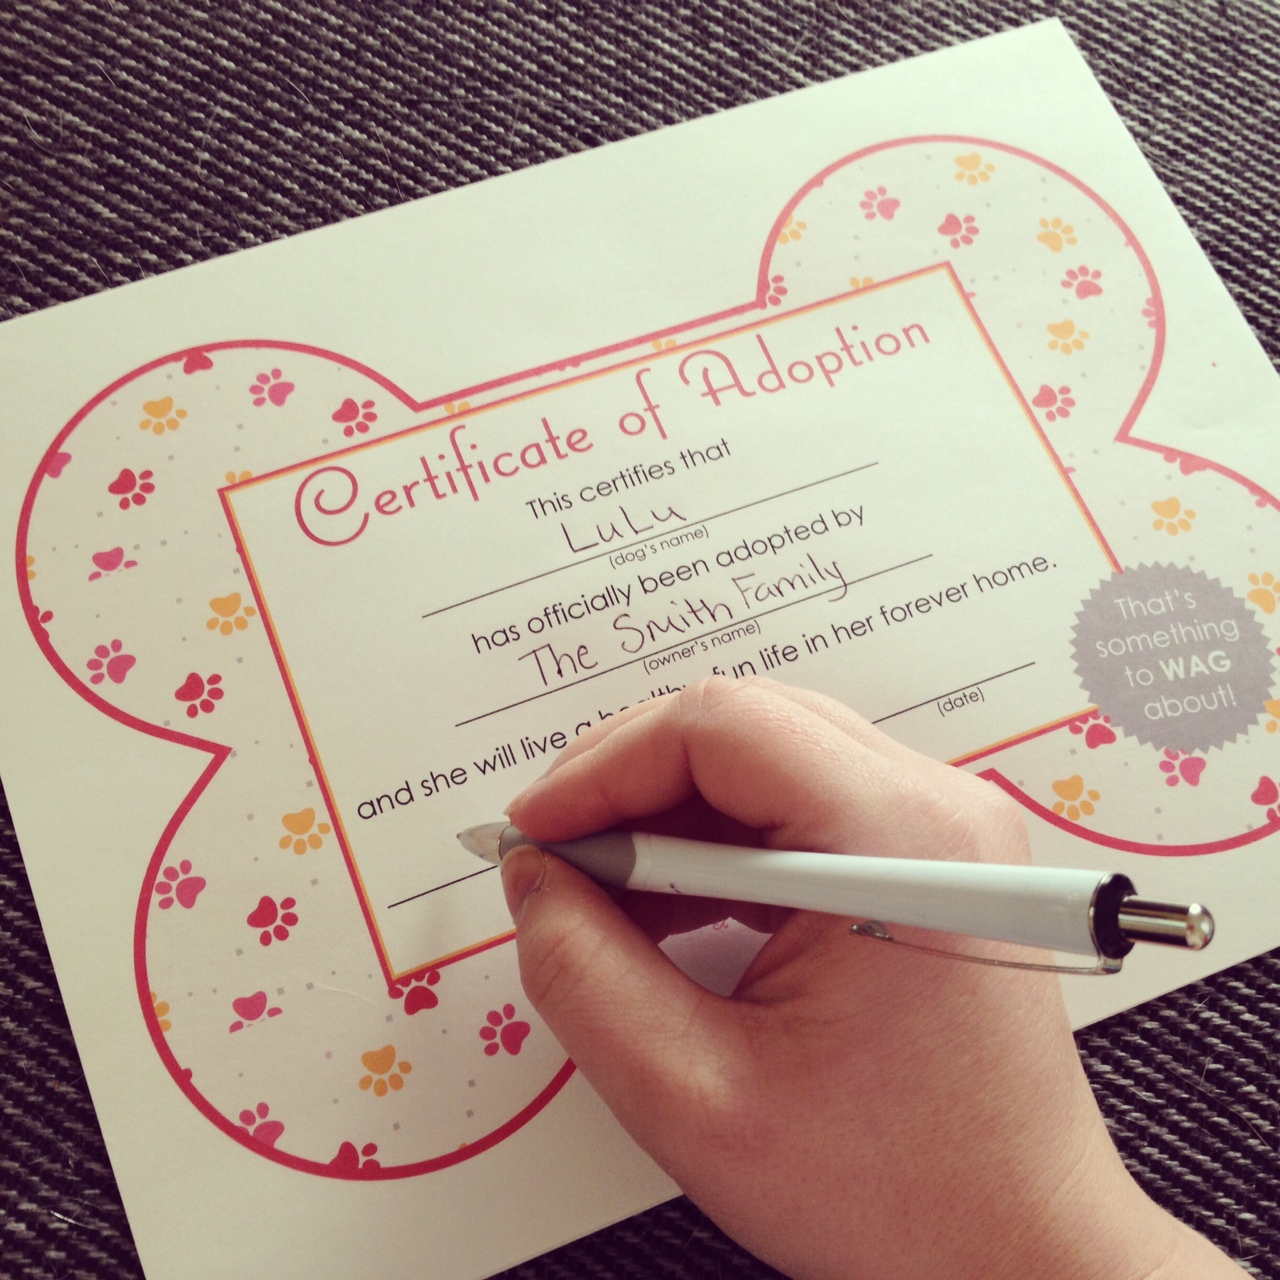 Certificate of Adoption
This certifies that
LuLu
(dog's name)
has officially been adopted by
The Smith Family
(owner's name)
and she will live a healthy, fun life in her forever home.
(date)
That's
something
to WAG
about!